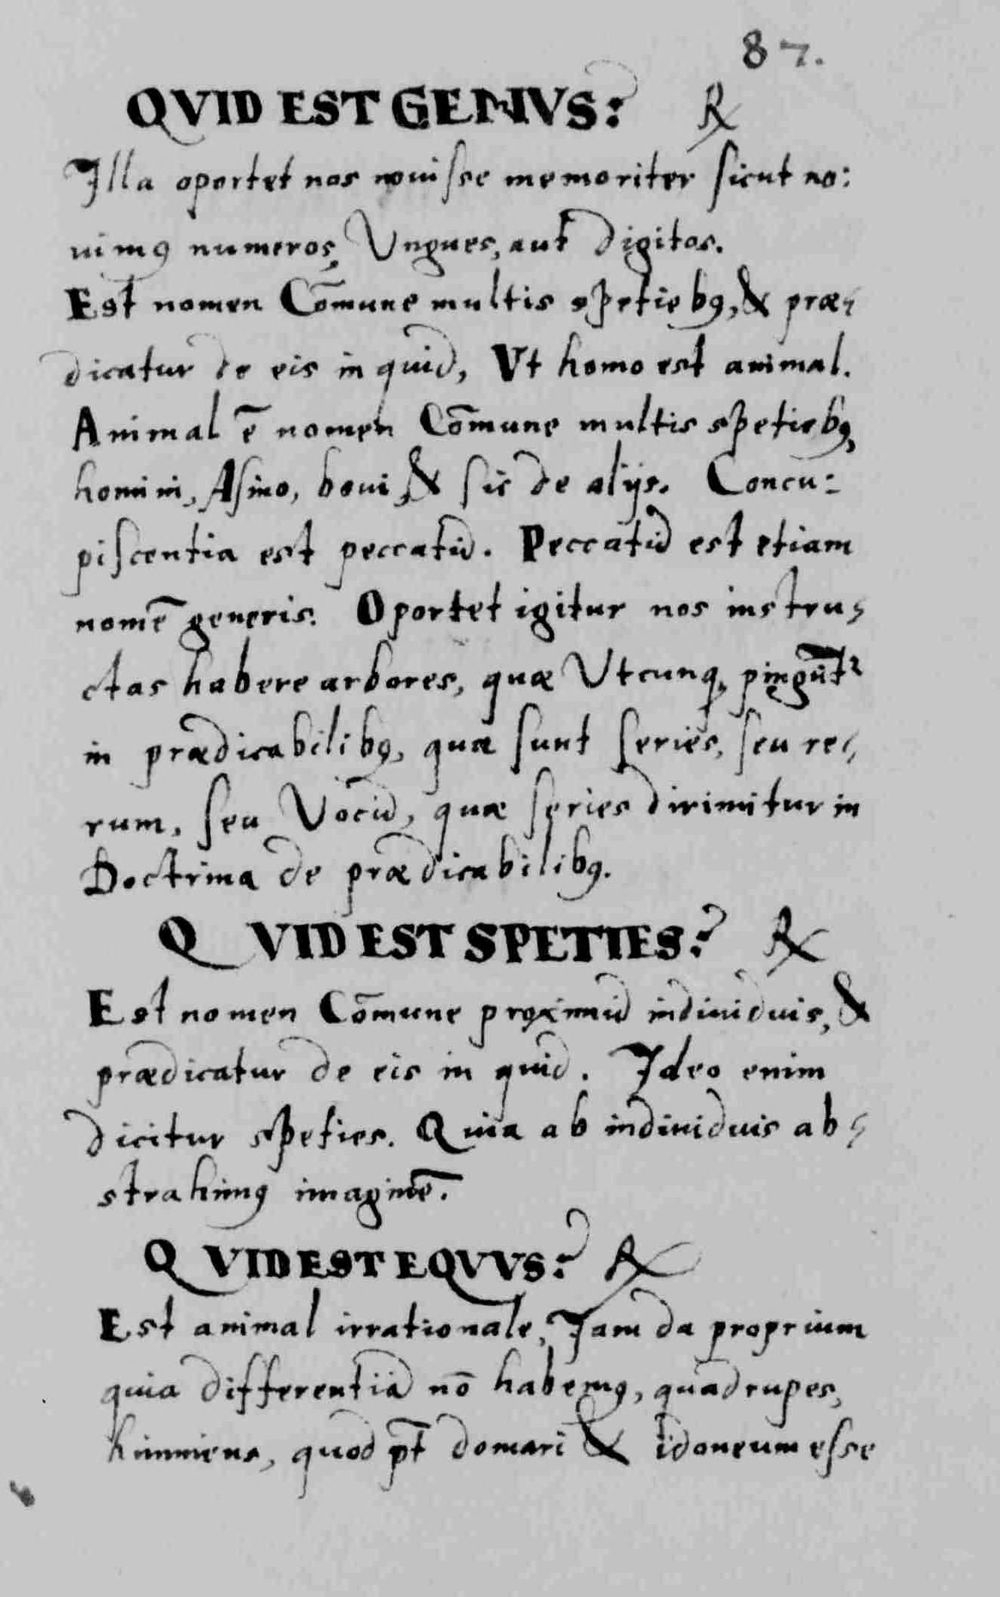 87.
QVID EST GENVS? ℟
Illa oportet nos nouisse memoriter sicut no:
uimꝰ numeros, Vngues, aut digitos.
Est nomen Com̄une multis spetiebꝰ, & præ-
dicatur de eis in quid, Vt homo est animal.
Animal ē nomen Com̄une multis spetiebꝰ,
homini, Asino, boui, & sic de alijs. Concu:
piscentia est peccatū. Peccatū est etiam
nomē generis. Oportet igitur nos instru-
ctas habere arbores, quæ Vtcunq, pingūtʳ
in prædicabilibꝰ, quæ sunt series, seu re-
rum, seu Vocū, quæ series dirimitur in
Doctrina de prædicabilibꝰ.
QVID EST SPETIES? ℟
Est nomen Com̄une proximū indiuiduis, &
prædicatur de eis in quid. Ideo enim
dicitur speties. Quia ab indiuiduis ab-
strahimꝰ imaginē.
QVID EST EQVVS? ℟
Est animal irrationale, Jam da proprium
quia differentiā nō habemꝰ, quadrupes,
hinniens, quod pt̄ domari & idoneum esse